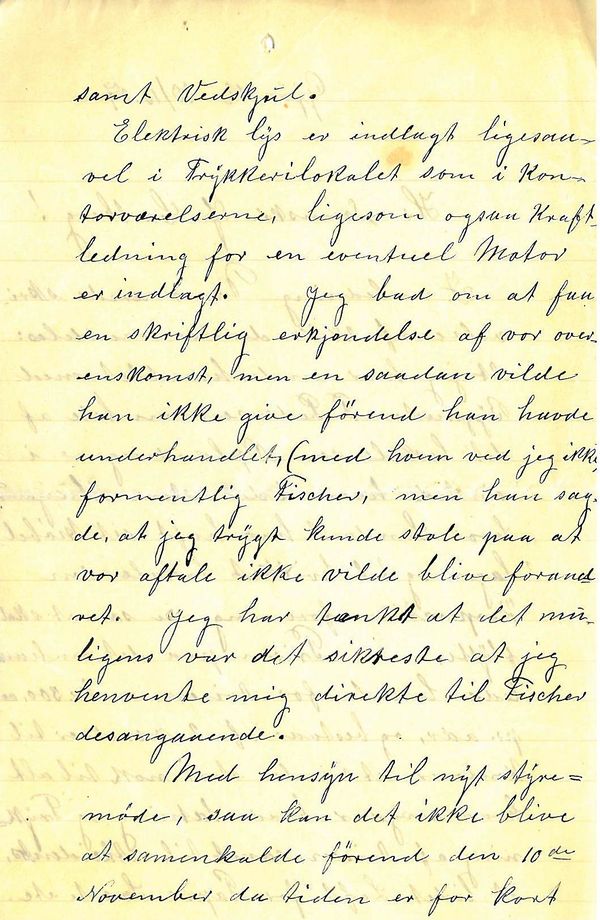 samt Vedskjul.
Elektrisk lys er indlagt ligesaa=
vel i Trykkerilokalet som i Kon=
torværelserne, ligesom ogsaa Kraft=
ledning for en eventuel Motor
er indlagt. Jeg bad om at faa
en skriftlig erkjendelse af vor over=
enskomst, men en saadan vilde
han ikke give förend han havde
underhandlet, (med hvem ved jeg ikke,
formentlig Fischer, men han sag=
de, at jeg trygt kunde stole paa at
vor aftale ikke vilde blive forand=
ret. Jeg har tænkt at det mu=
ligens var det sikreste at jeg
henvente mig direkte til Fischer
desangaaende.
Med hensyn til nyt styre=
möde, saa kan det ikke blive
at samenkalde förend den 10de
November da tiden er for kort